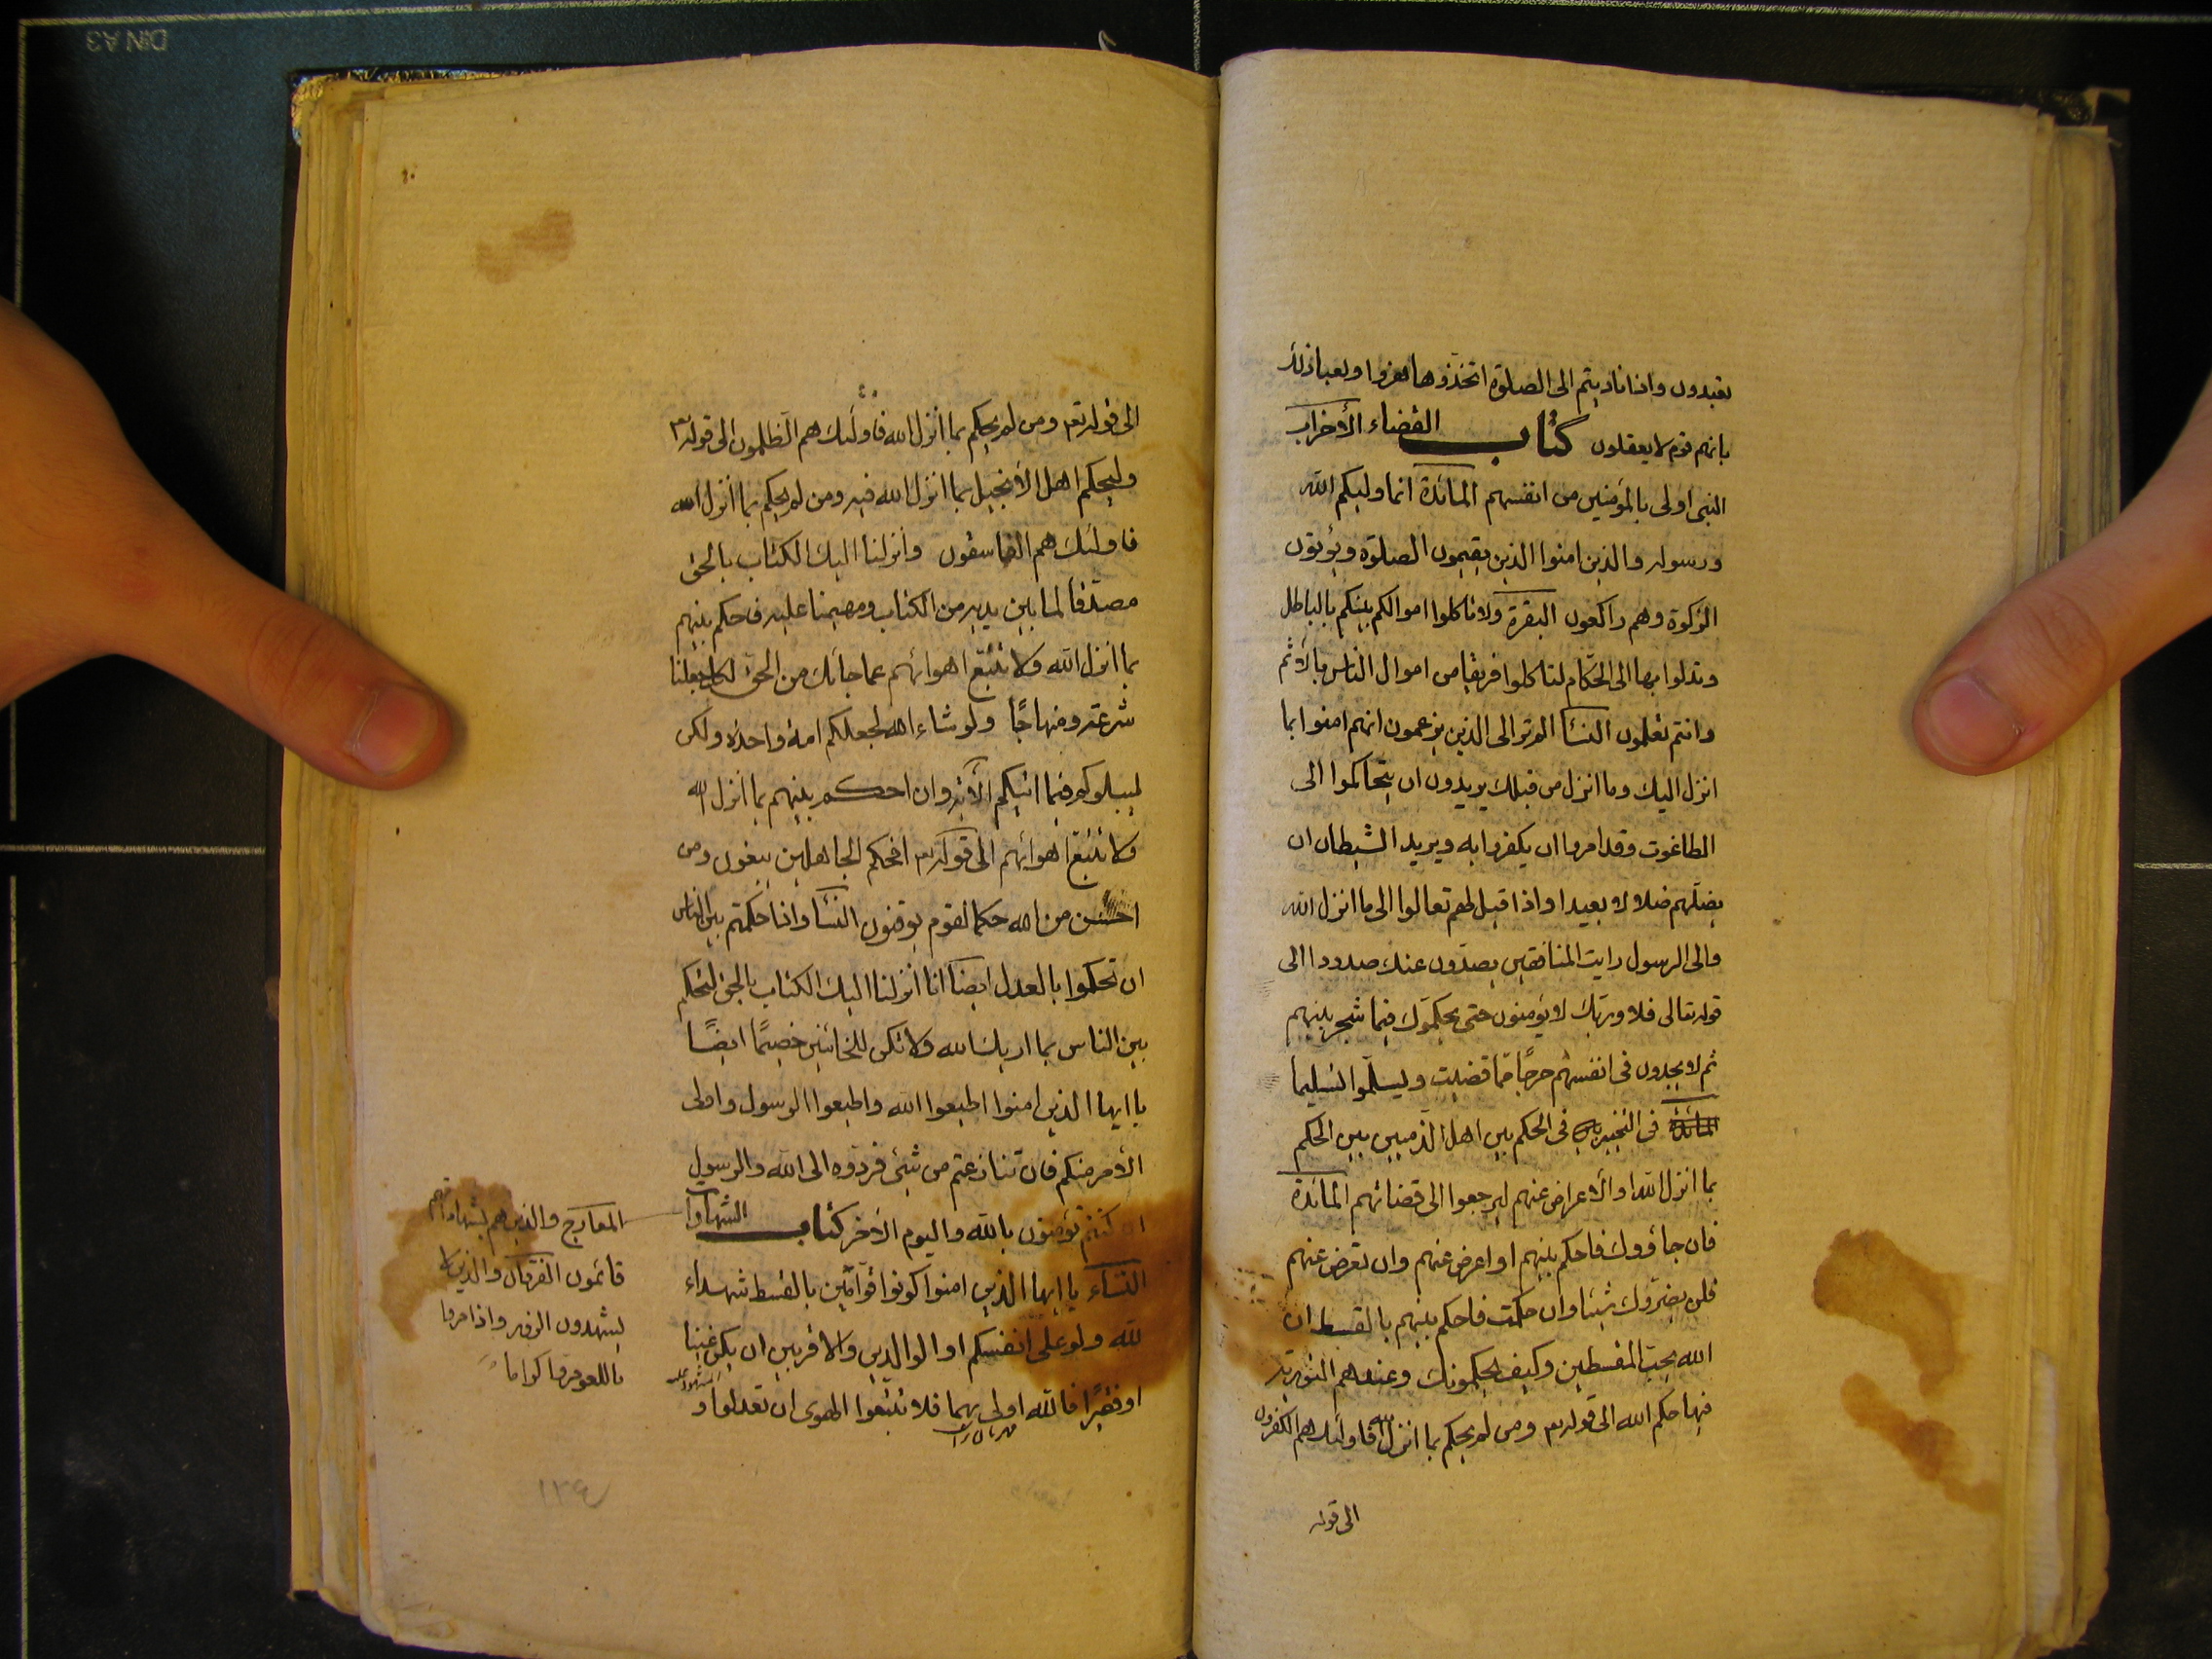 تعبدون واذا ناديتم الى الصلوة اتخذوها هزوا ولعبا ذلك
بانهم قوم لا يعقلون كتاب القضاء الأحزاب
النبى اولى بالمؤمنين من انفسهم المائدة انما وليكم الله
ورسوله والذين امنوا الذين يقيمون الصلوة ويؤتون
الزكوة وهم راكعون البقرة ولا تاكلوا اموالكم بينكم بالباطل
وتدلوا بها الى الحكام لتاكلوا فريقا من اموال الناس بالأثم
وانتم تعلمون النسآ الم تر الى الذين يزعمون انهم امنوا بما
انزل اليك وما انزل من قبلك يريدون ان يتحاكموا الى
الطاغوت وقد امروا ان يكفروا به ويريد الشيطان ان
يضلهم ضلالا بعيدا واذا قيل لهم تعالوا الى ما انزل الله
والى الرسول رايت المنافقين يصدون عنك صدودا الى
قوله تعالى فلا وربك لا يؤمنون حتى يحكموك فيما شجر بينهم
ثم لا يجدون فى انفسهم حرجا مما قضيت ويسلموا تسليما
المائدة فى التخيير فى الحكم بين اهل الذميين بين الحكم
بما انزل الله او الاعراض عنهم ليرجعوا الى قضائهم المائدة
فان جاؤوك فاحكم بينهم او اعرض عنهم وان تعرض عنهم
فلن يضروك شيئا وان حكمت فاحكم بينهم بالقسط ان
الله يحب المقسطين وكيف يحكمونك وعندهم التورية
فيها حكم الله الى قوله تع ومن لم يحكم بما انزل الله فاولئك هم الكفرون
الى قوله
الى قوله تع ومن لم يحكم بما أنزل الله فاولئك هم الظلمون الى قوله تع
وليحكم اهل الأنجيل بما انزل الله فيه ومن لم يحكم بما أنزل الله
فاولئك هم الفاسقون وانزلنا اليك الكتاب بالحق
مصدقا لما بين يديه من الكتاب ومهيمنا عليه فاحكم بينهم
بما انزل الله ولا تتبع اهوائهم عما جائك من الحق لكل جعلنا
شرعة ومنهاجًا ولو شاء الله لجعلكم امة واحدة ولكن
ليبلوكم فيما اتيكم الآية وان احكم بينهم بما أنزل الله
ولا تتبع اهوائهم الى قوله تع افحكم الجاهلين يبغون ومن
احسن من الله حكما لقوم يوقنون النسآ واذا حكمتم بين الناس
ان تحكموا بالعدل ايضا انا أنزلنا اليك الكتاب بالحق لتحكم
بين الناس بما اريك الله ولا تكن للخائنين خصيمًا ايضًا
يا ايها الذين امنوا اطيعوا الله واطيعوا الرسول واولى
الأمر منكم فان تنازعتم من شئ فردوه الى الله والرسول
ان كنتم تؤمنون بالله واليوم الأخر كتاب الشهادا
النسآء يا ايها الذين امنوا كونوا قوامين بالقسط شهداء
لله ولو على انفسكم او الوالدين والأقربين ان يكن غنيا
او فقيرًا فالله اولى بهما فلا تتبعوا الهوى ان تعدلوا و
المعارج والذين هم بشهاداتهم
قائمون الفرقان والذين لا
يشهدون الزور واذا مروا
باللغو مروا كراما